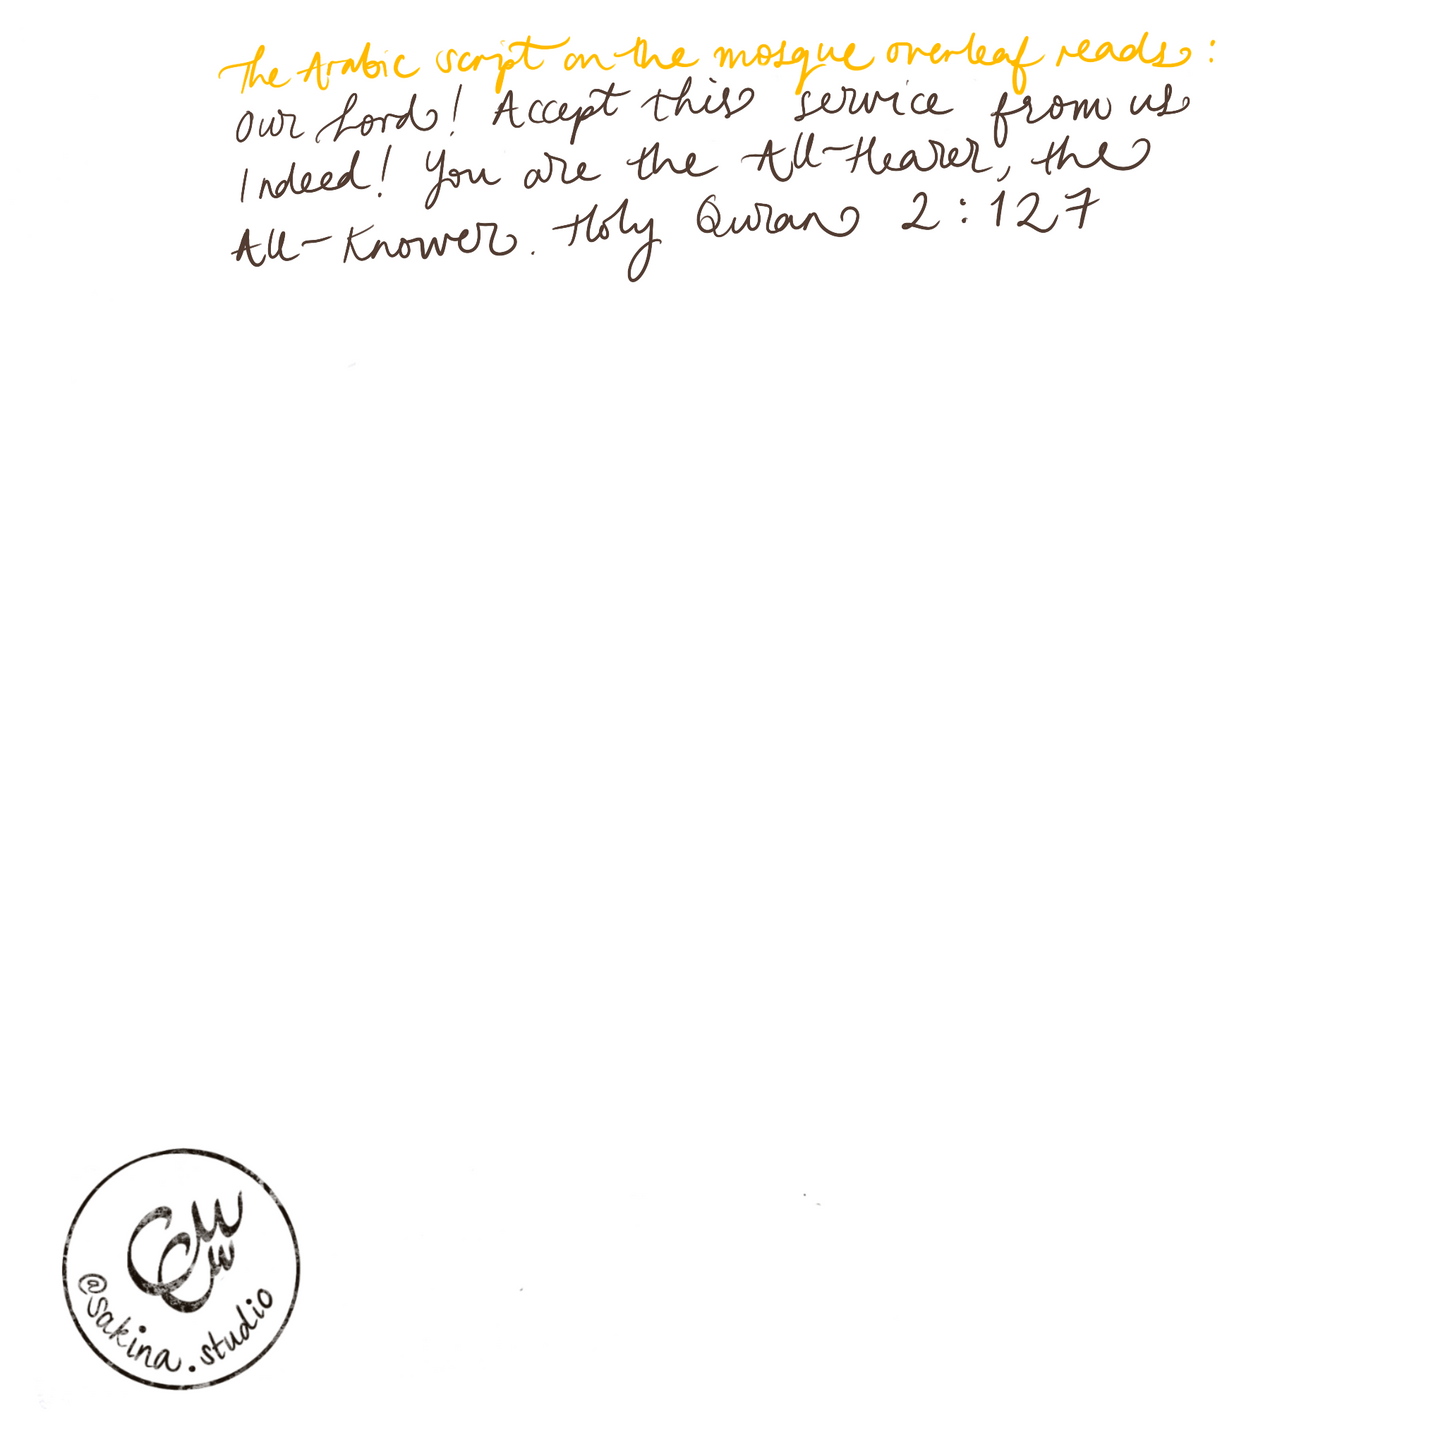 The Arabic script on the mosque overleaf reads:
Our Lord! Accept this service from us
Indeed! You are the All-Hearer, the
All-Knower. Holy Quran 2:127
@sakina.studio